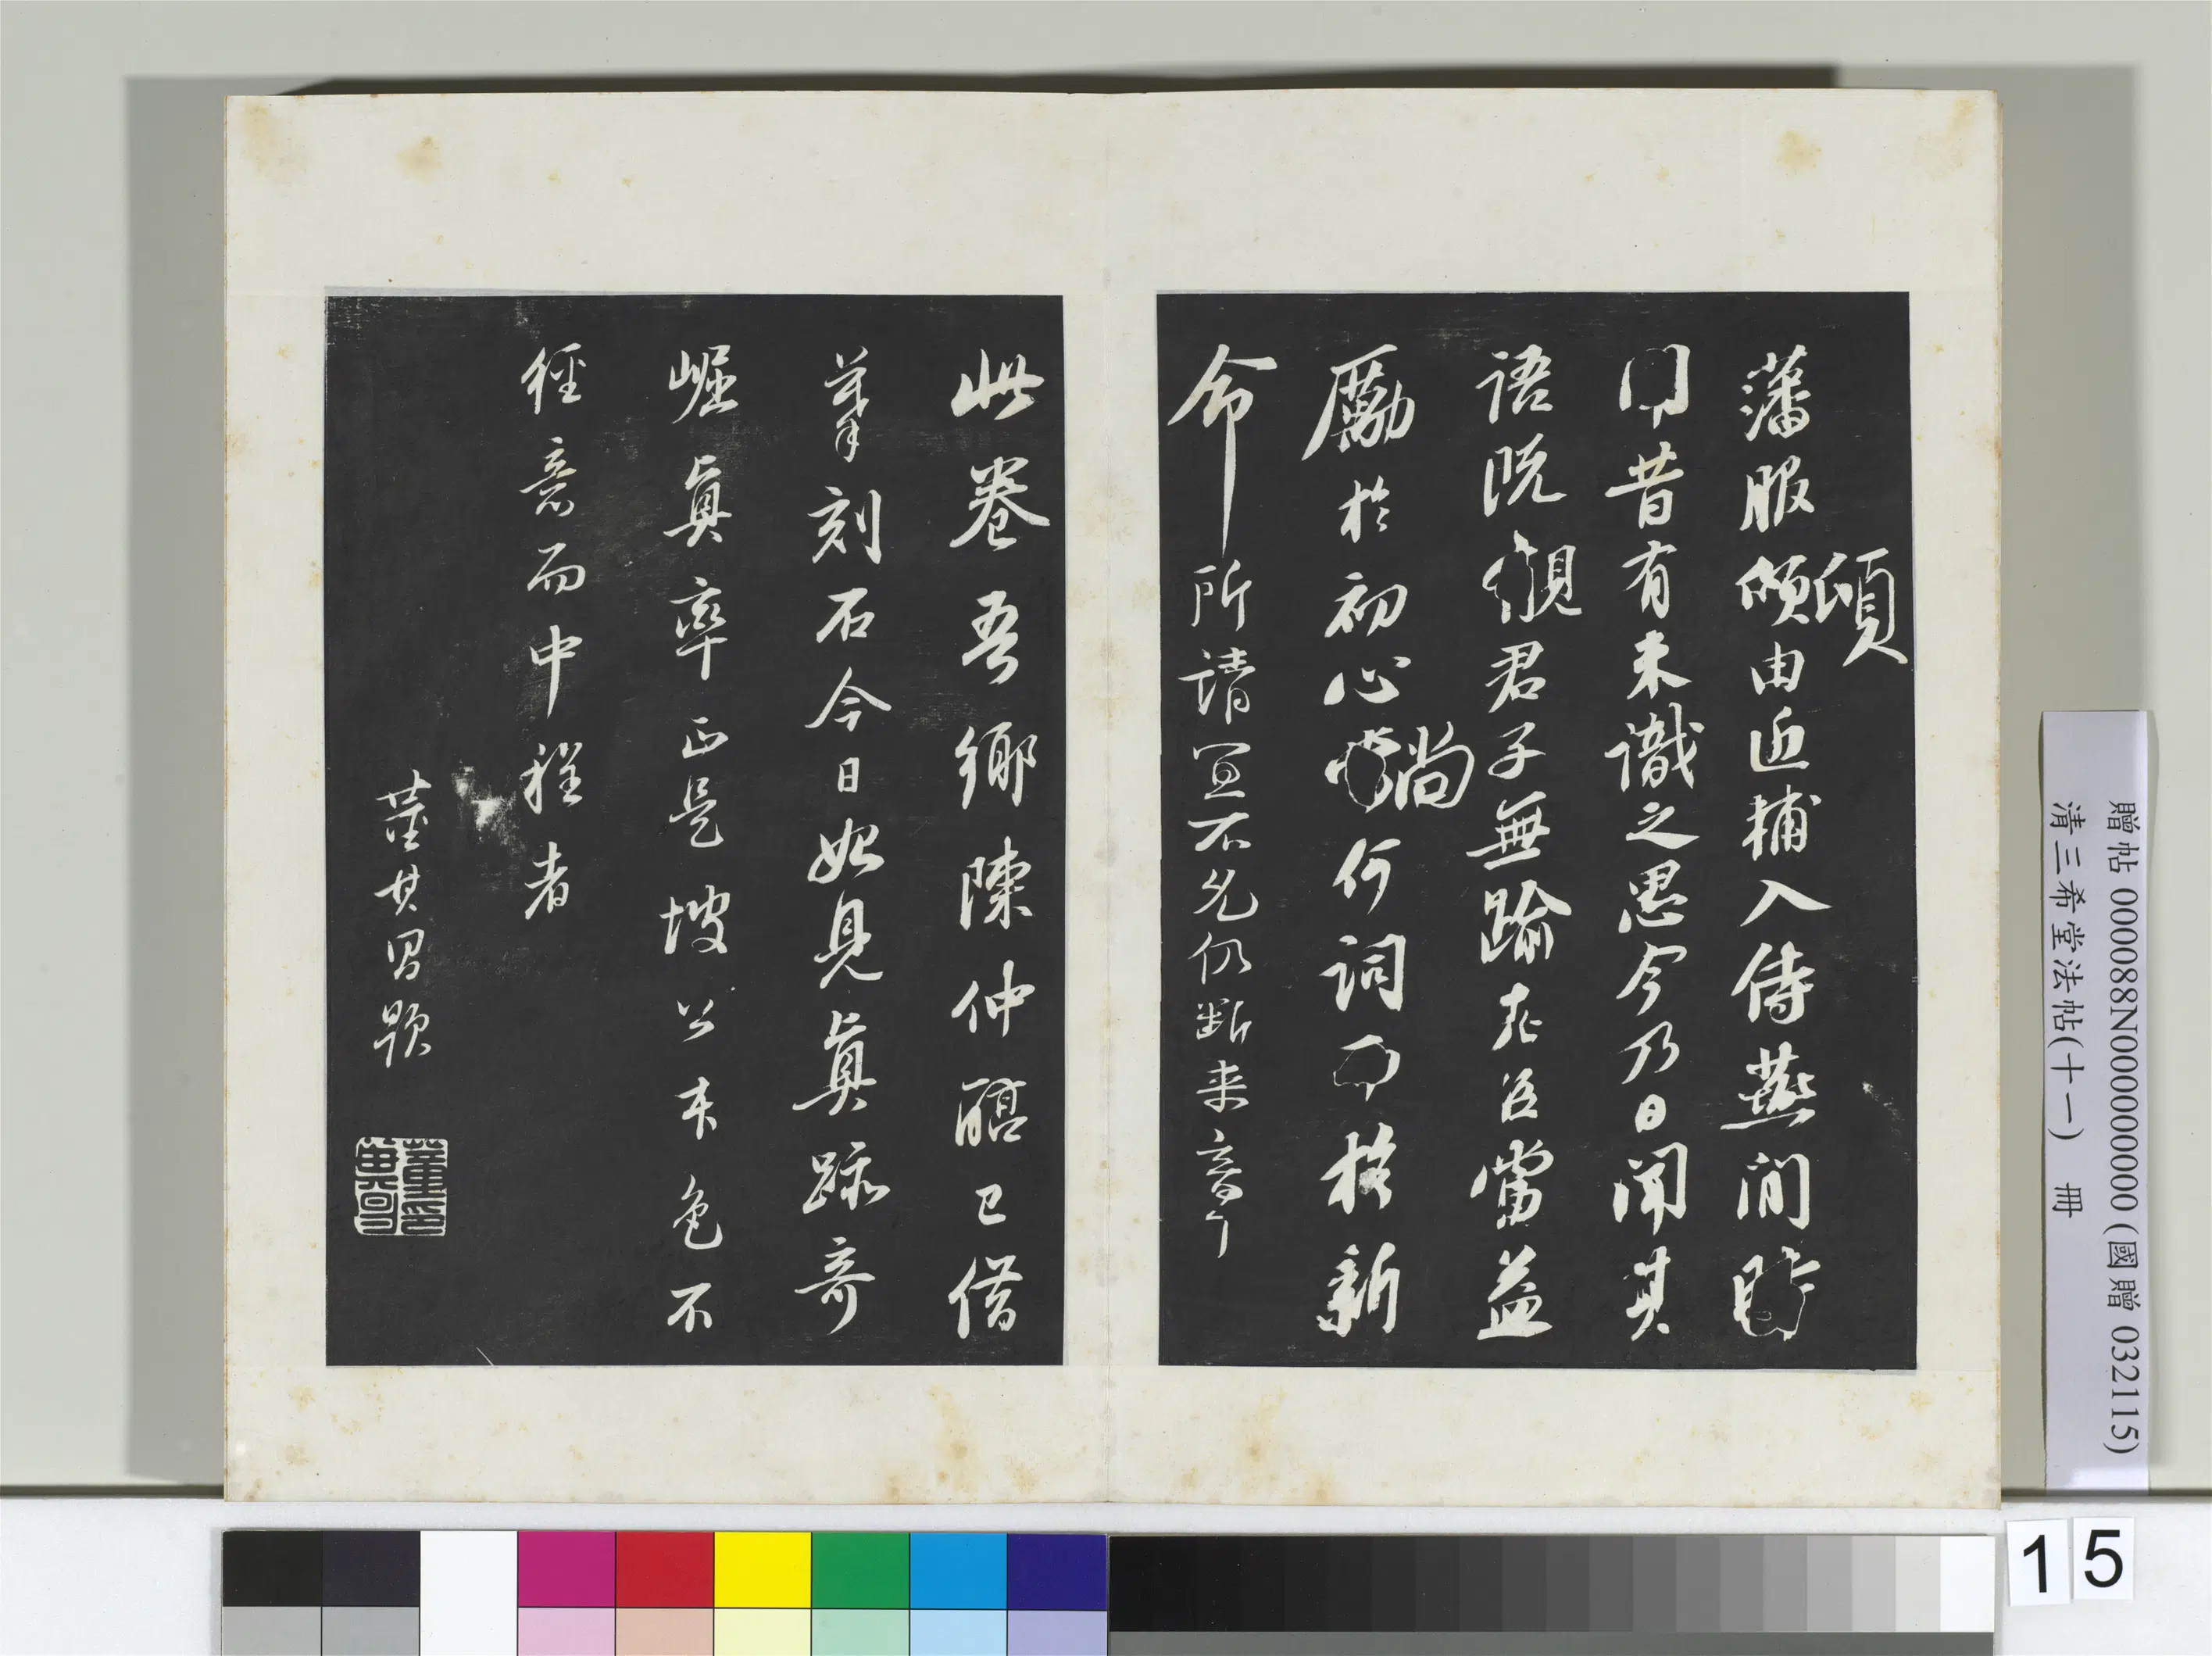 藩服頃由近輔入侍燕閒時
頃
門昔有未識之愚今乃日聞其
語既親君子無踰老臣當益
勵於初心尚何詞於新
尚
命所請宜不允仍斷来章
此卷吾鄉陳仲醇已借
摹刻石今日始見真跡奇
崛真率正是坡公本色不
經意而中程者
董其昌題
贈帖 000088N000000000 (國贈 032115)
清三希堂法帖(十一) 冊
15